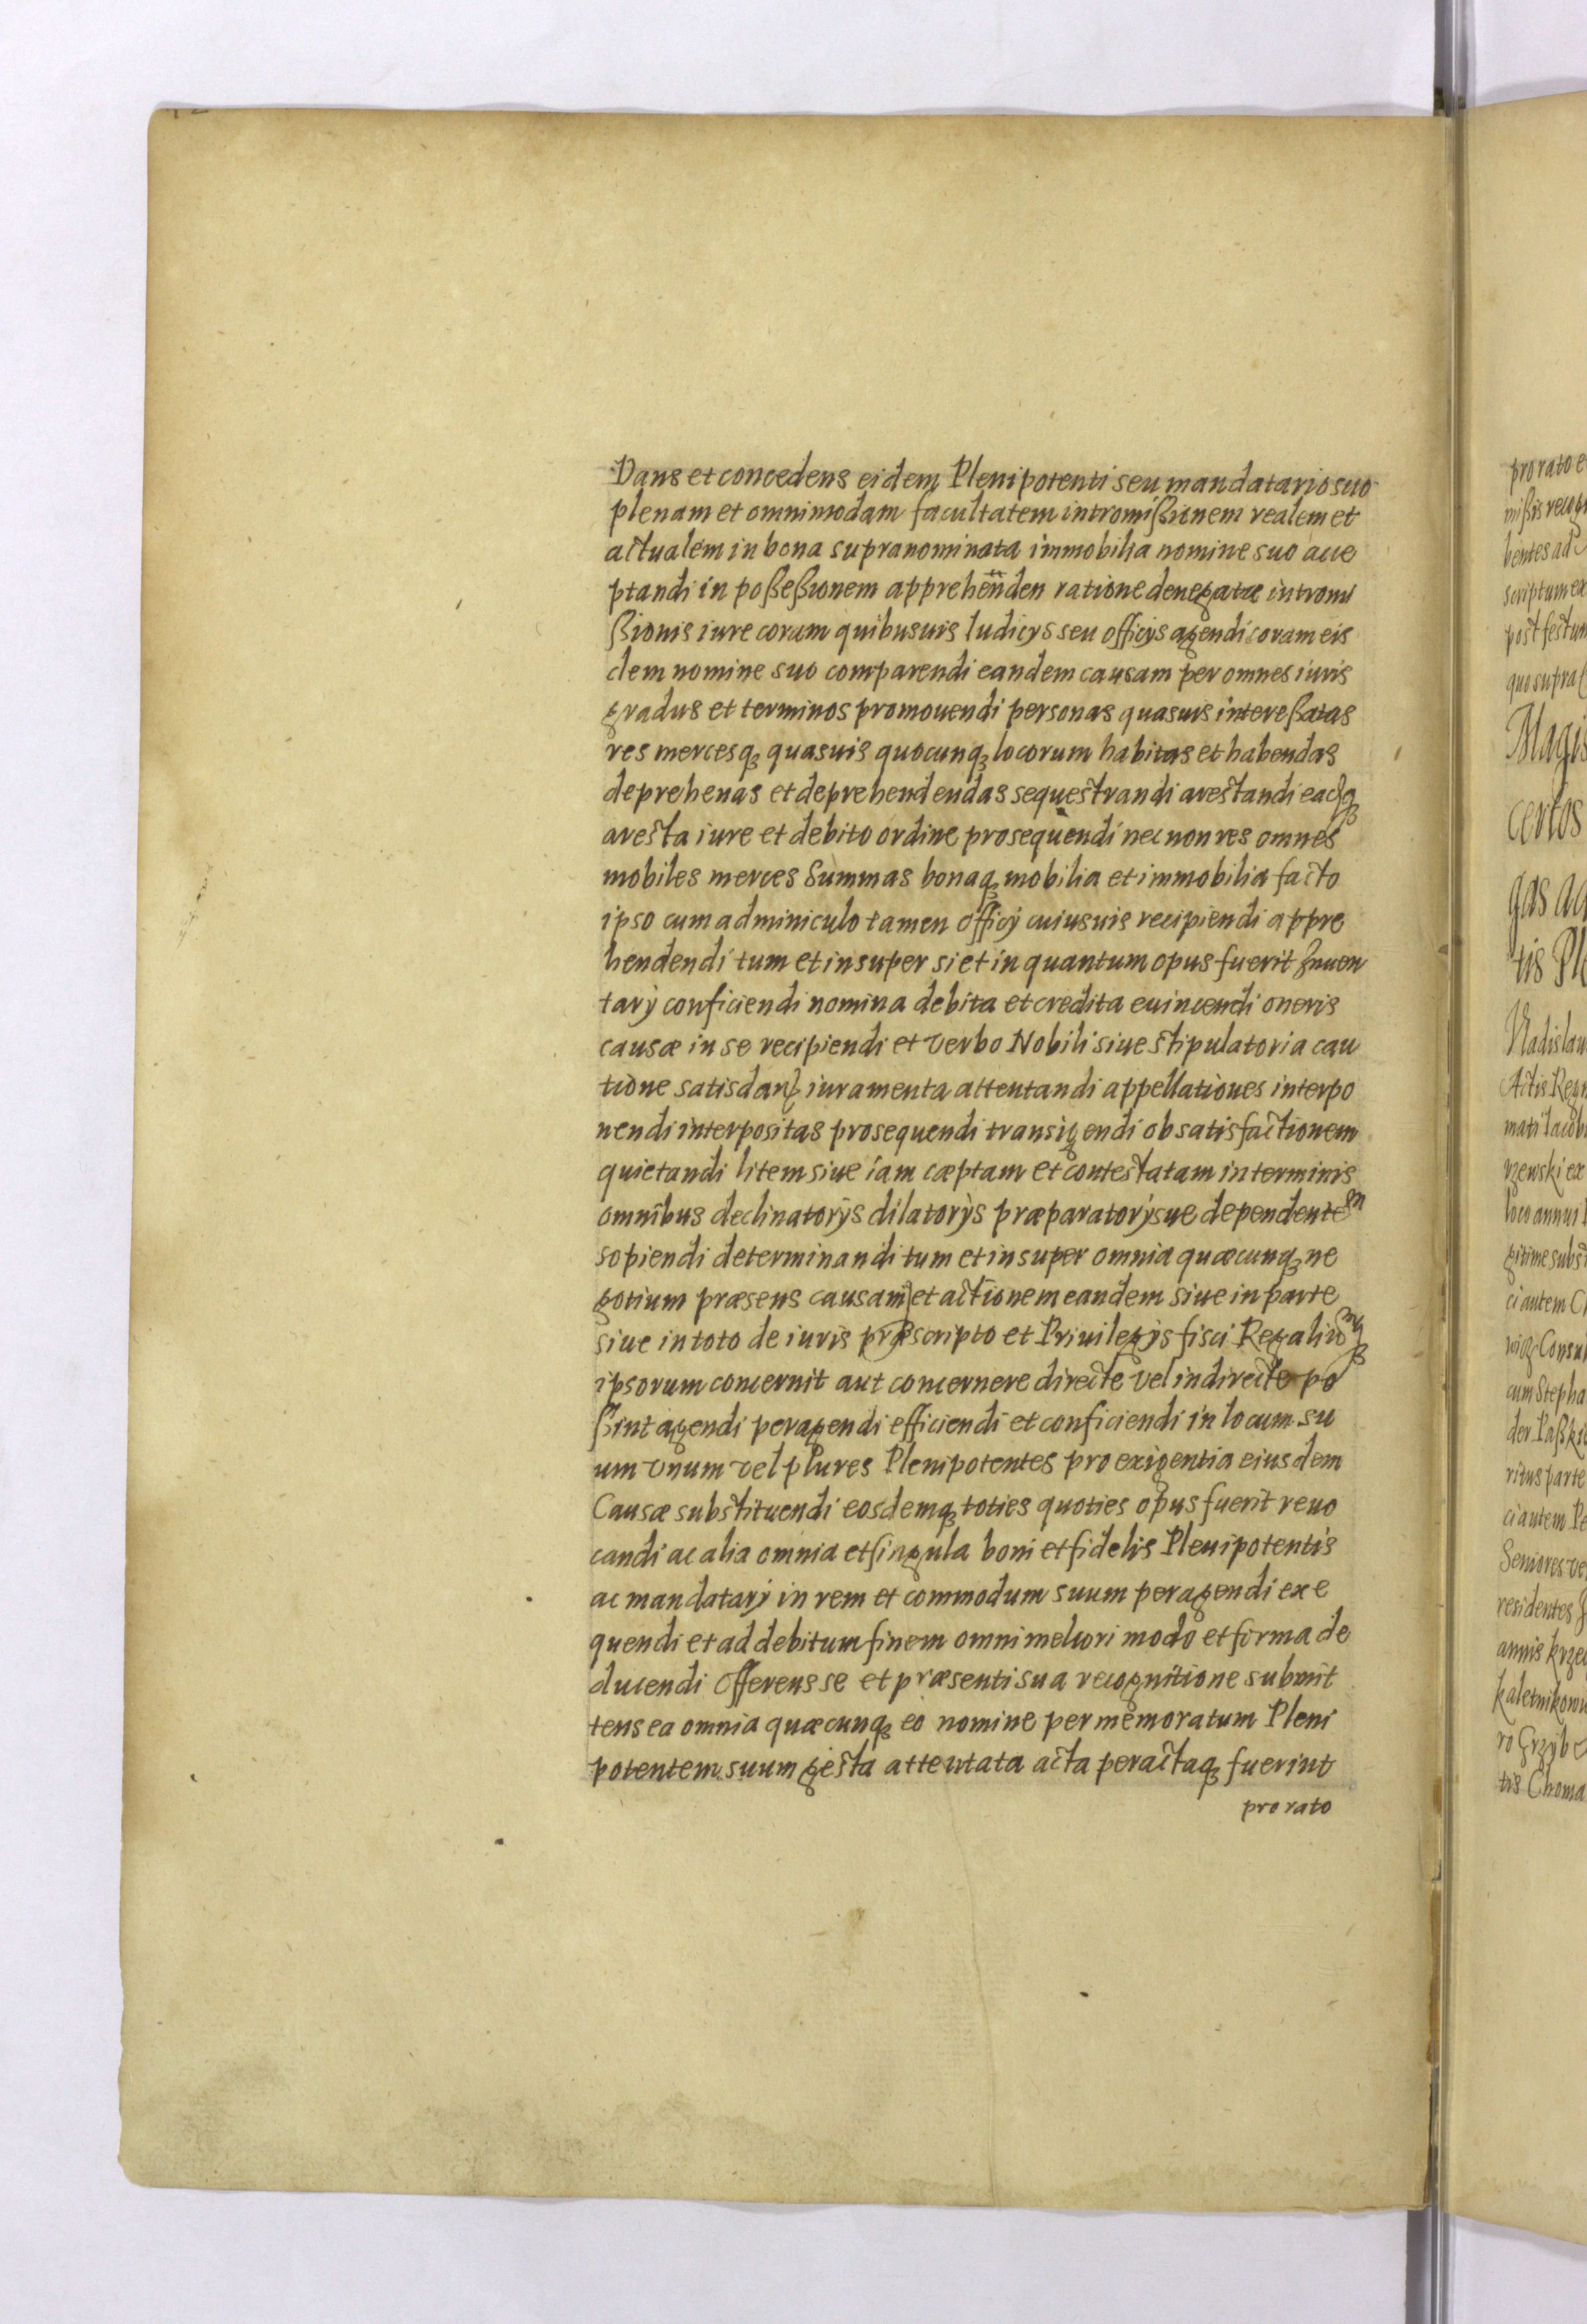 Dans et concedens eidem Plenipotenti seu mandatario suo
plenam et omnimodam facultatem intromißionem realem et
actualem in bona supranominata immobilia nomine suo acce
ptandi in poßeßionem apprehenden ratione denegatæ intromi
ßionis iure coram quibusuis Iudicys seu officys agendi coram eis
dem nomine suo comparendi eandem causam per omnes iuris
gradus et terminos promouendi personas quasuis intereßatas
res mercesq quasuis quocunq locorum habitas et habendas
deprehenas et deprehendendas sequestrandi arestandi eadq
aresta iure et debito ordine prosequendi nec non res omnes
mobiles merces Summas bonaq mobilia et immobilia facto
ipso cum adminiculo tamen officy cuiusuis recipiendi appre
hendendi tum et insuper si et in quantum opus fuerit Inuen
tary conficiendi nomina debita et credita euincendi oneris
causæ in se recipiendi et verbo Nobili siue stipulatoria cau
tione satisdan iuramenta attentandi appellationes interpo
nendi interpositas prosequendi transigendi ob satisfactionem
quietandi litem siue iam cæptam et contestatam in terminis
omnibus declinatorys dilatorys præparatorysue dependentem
sopiendi determinandi tum et insuper omnia quæcunq ne
gotium præsens causam et actionem eandem siue in parte
siue in toto de iuris præscripto et Priuilegys fisci Regaliumq
ipsorum concernit aut concernere directe vel indirecte po
ßint agendi peragendi efficiendi et conficiendi in locum su
um vnum vel plures Plenipotentes pro exigentia eiusdem
Causæ substituendi eosdemq toties quoties opus fuerit reuo
candi ac alia omnia et singula boni et fidelis Plenipotentis
ac mandatary in rem et commodum suum peragendi exe
quendi et ad debitum finem omni meliori modo et forma de
ducendi Offerens se et præsenti sua recognitione submit
tens ea omnia quæcunq eo nomine per memoratum Pleni
potentem suum gesta attentata acta peractaq fuerint
pro rato
pro rato e
mißis recog
bentes ad
scriptum ex
post festum
quo supra
Magis
certos
gas ac
tis Pl
Vladislau
Actis Regn
mati Iacob
rzewski ex
loco annui
gitime subst
ci autem C
uiq Consu
cum Stepha
der Paßki
ritus parte
ci autem Pe
Seniores ve
residentes
annis krze
kaletnikow
ro Grzyb
tis Choma